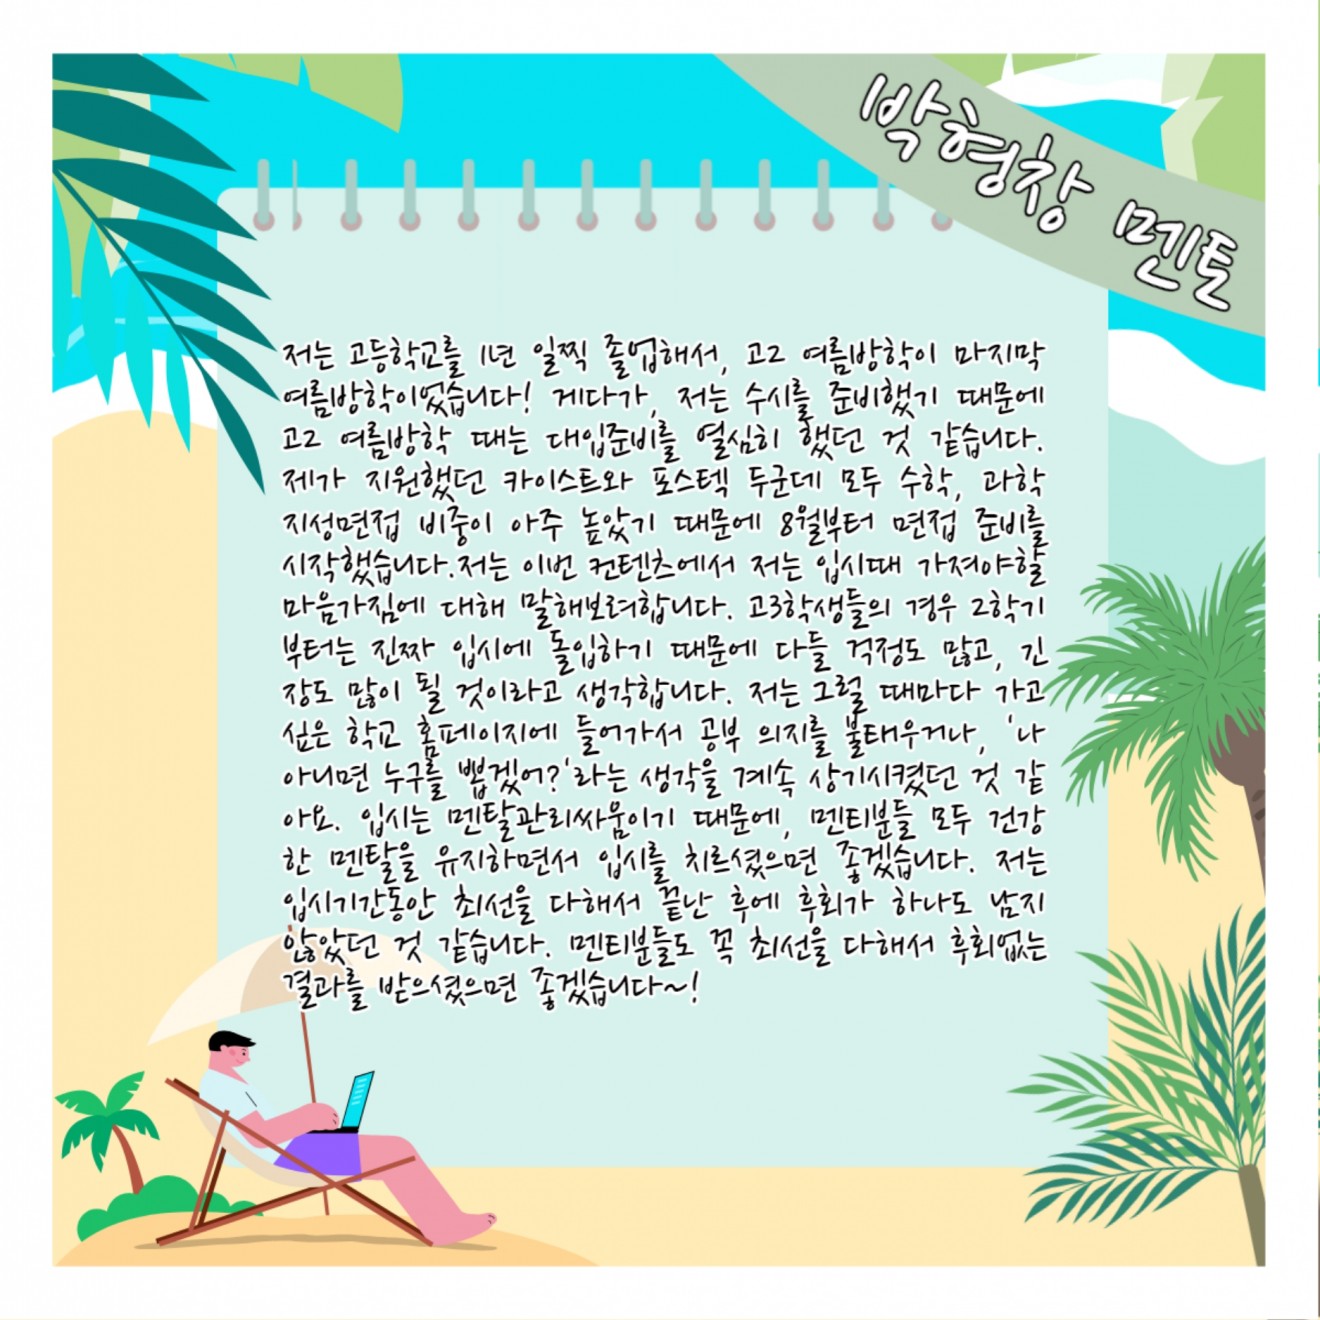 박형창 멘토
저는 고등학교를 1년 일찍 졸업해서, 고2 여름방학이 마지막
여름방학이었습니다! 게다가, 저는 수시를 준비했기 때문에
고2 여름방학 때는 대입준비를 열심히 했던 것 같습니다.
제가 지원했던 카이스트와 포스텍 두군데 모두 수학, 과학
지성면접 비중이 아주 높았기 때문에 8월부터 면접 준비를
시작했습니다.저는 이번 컨텐츠에서 저는 입시때 가져야할
마음가짐에 대해 말해보려합니다. 고3학생들의 경우 2학기
부터는 진짜 입시에 돌입하기 때문에 다들 걱정도 많고, 긴
장도 많이 될 것이라고 생각합니다. 저는 그럴 때마다 가고
싶은 학교 홈페이지에 들어가서 공부 의지를 불태우거나, '나
아니면 누구를 뽑겠어?'라는 생각을 계속 상기시켰던 것 같
아요. 입시는 멘탈관리싸움이기 때문에, 멘티분들 모두 건강
한 멘탈을 유지하면서 입시를 치르셨으면 좋겠습니다. 저는
입시기간동안 최선을 다해서 끝난 후에 후회가 하나도 남지
않았던 것 같습니다. 멘티분들도 꼭 최선을 다해서 후회없는
결과를 받으셨으면 좋겠습니다~!